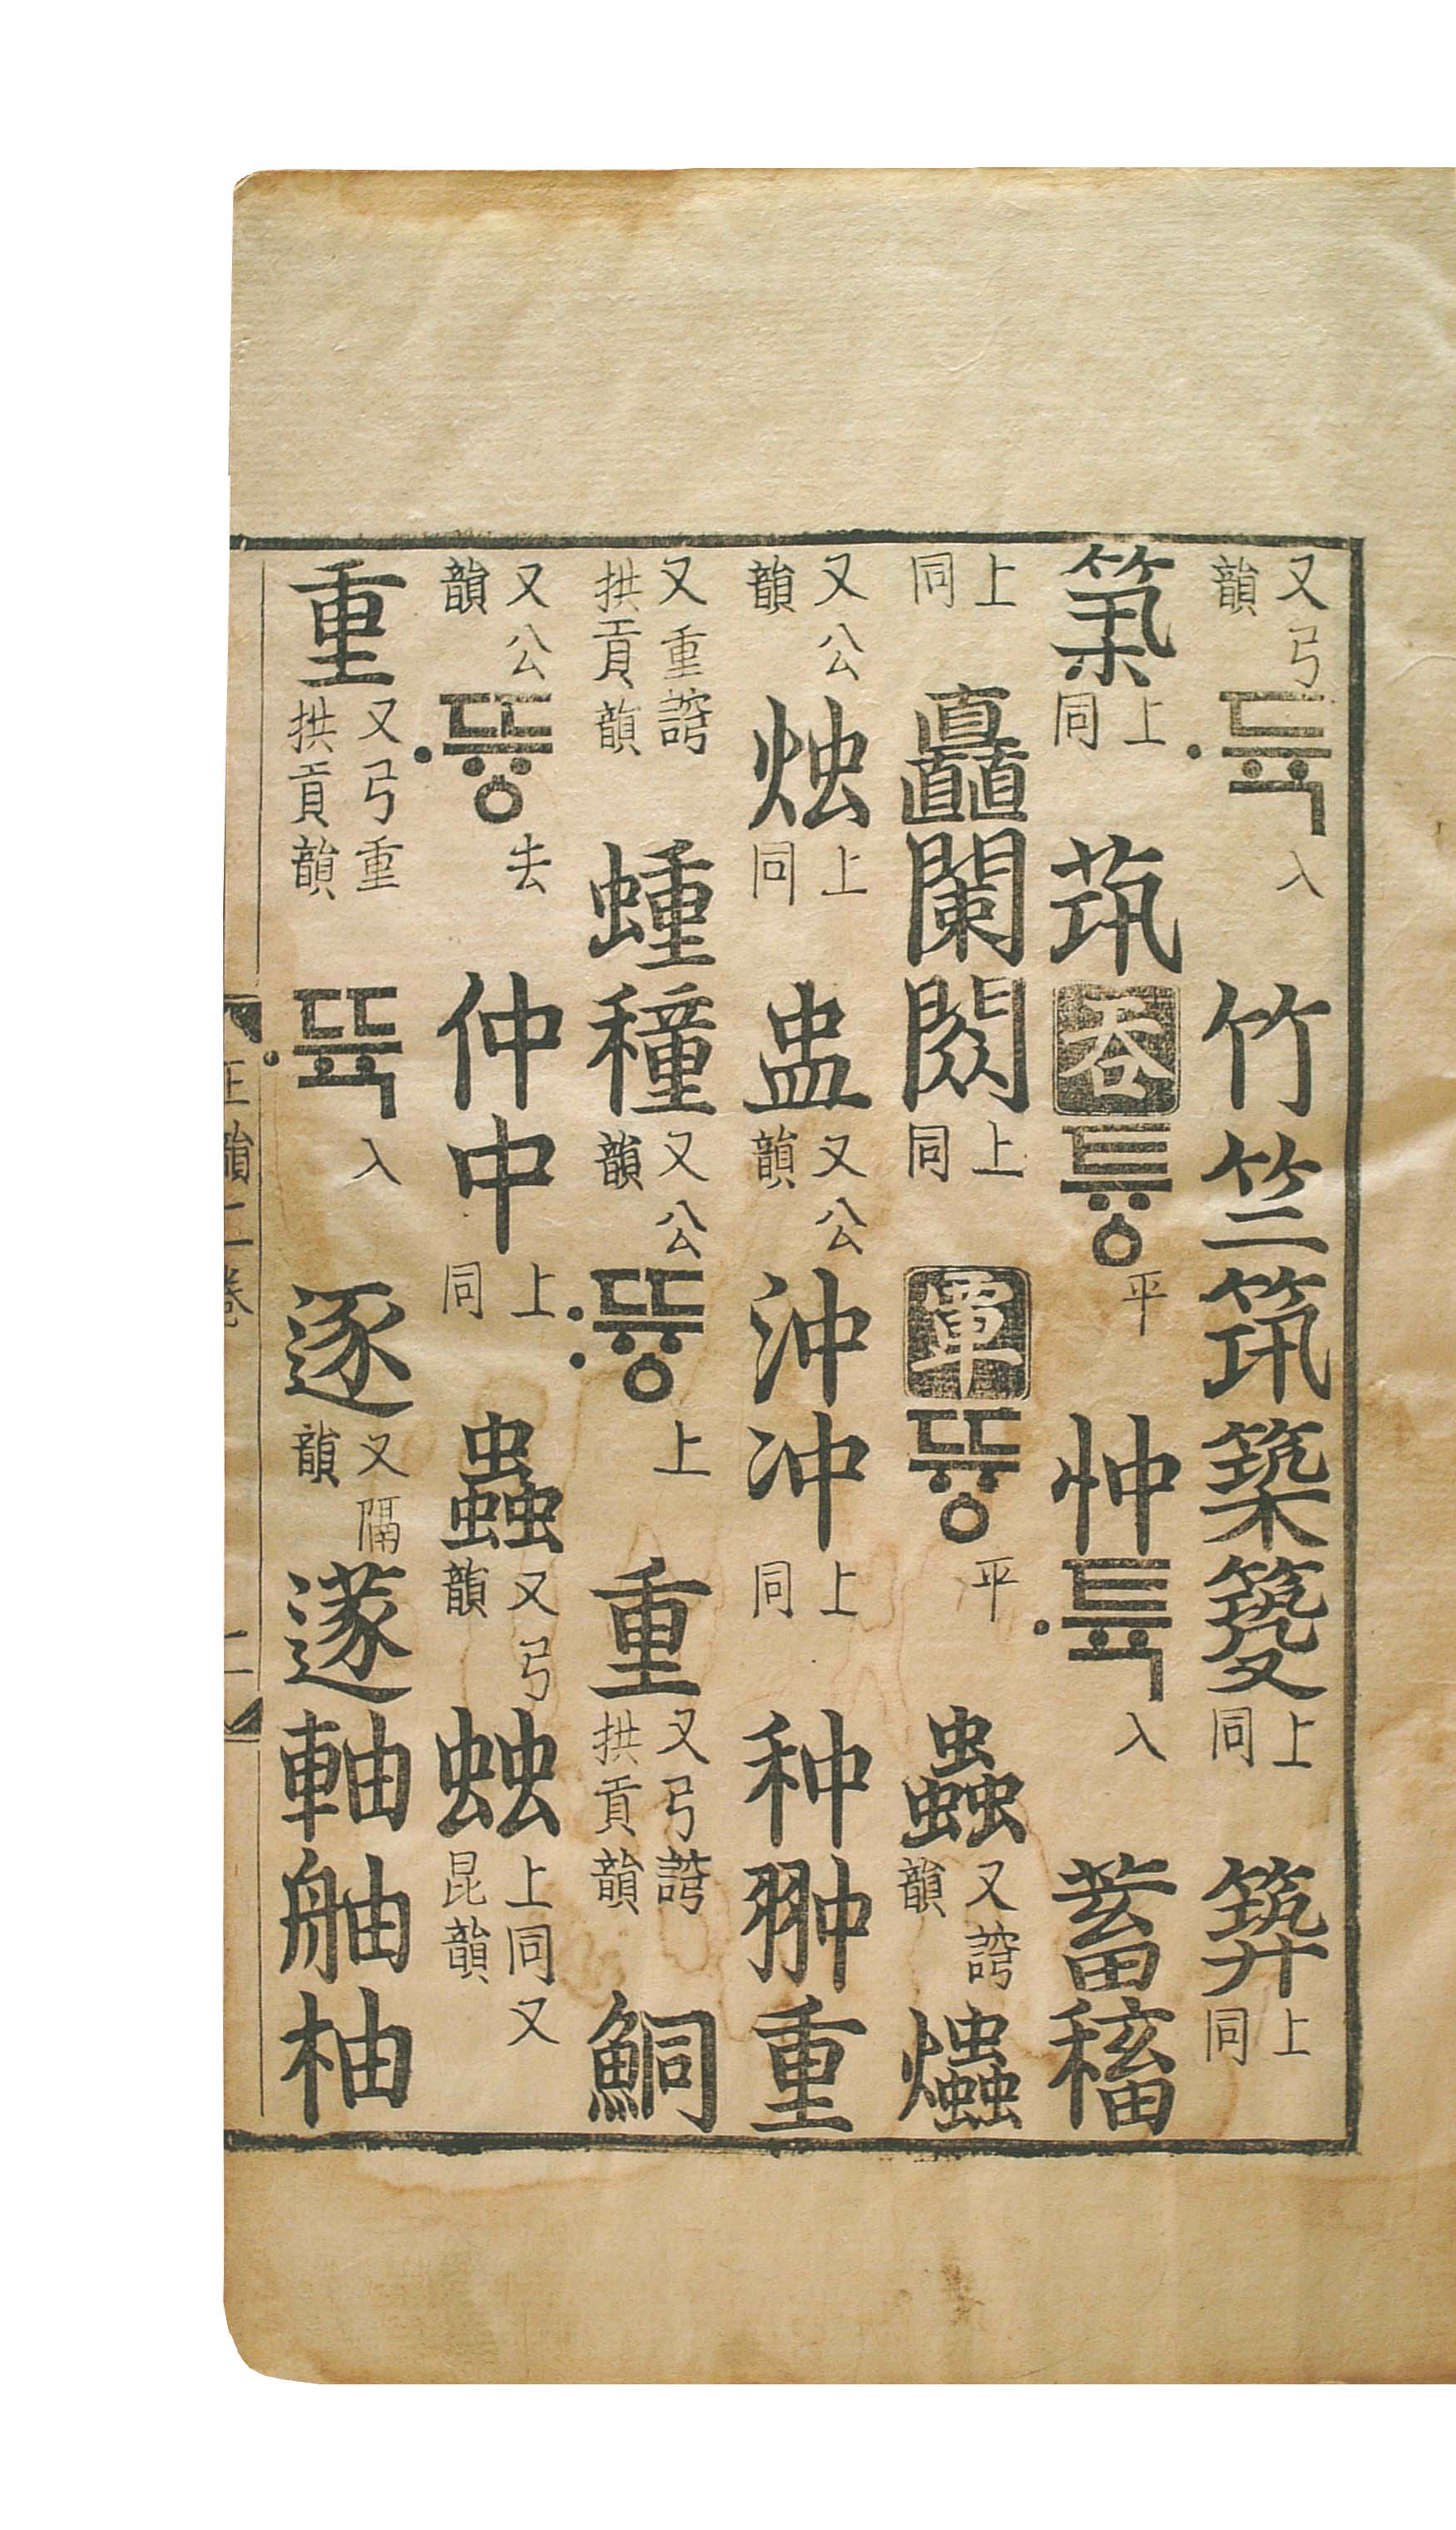 又弓韻 ·듁入 竹竺筑築 上同 上同
上同 茿 呑 튜ᇰ平 忡 ·튝入 蓄稸
上同 矗 閦上同 覃 뜌ᇰ平 蟲又韻 爞
又公韻 烛上同 盅又公韻 沖冲上同 种翀重
又重拱貢韻 蝩穜又公韻 :뜌ᇰ上 重又弓拱貢韻 鮦
又公韻 ·뜌ᇰ去 仲中上同 蟲又弓韻 䖵上同又昆韻
重又弓重拱貢韻 ·뜍入 逐又隔韻 蓫軸舳柚
正韻二卷 二